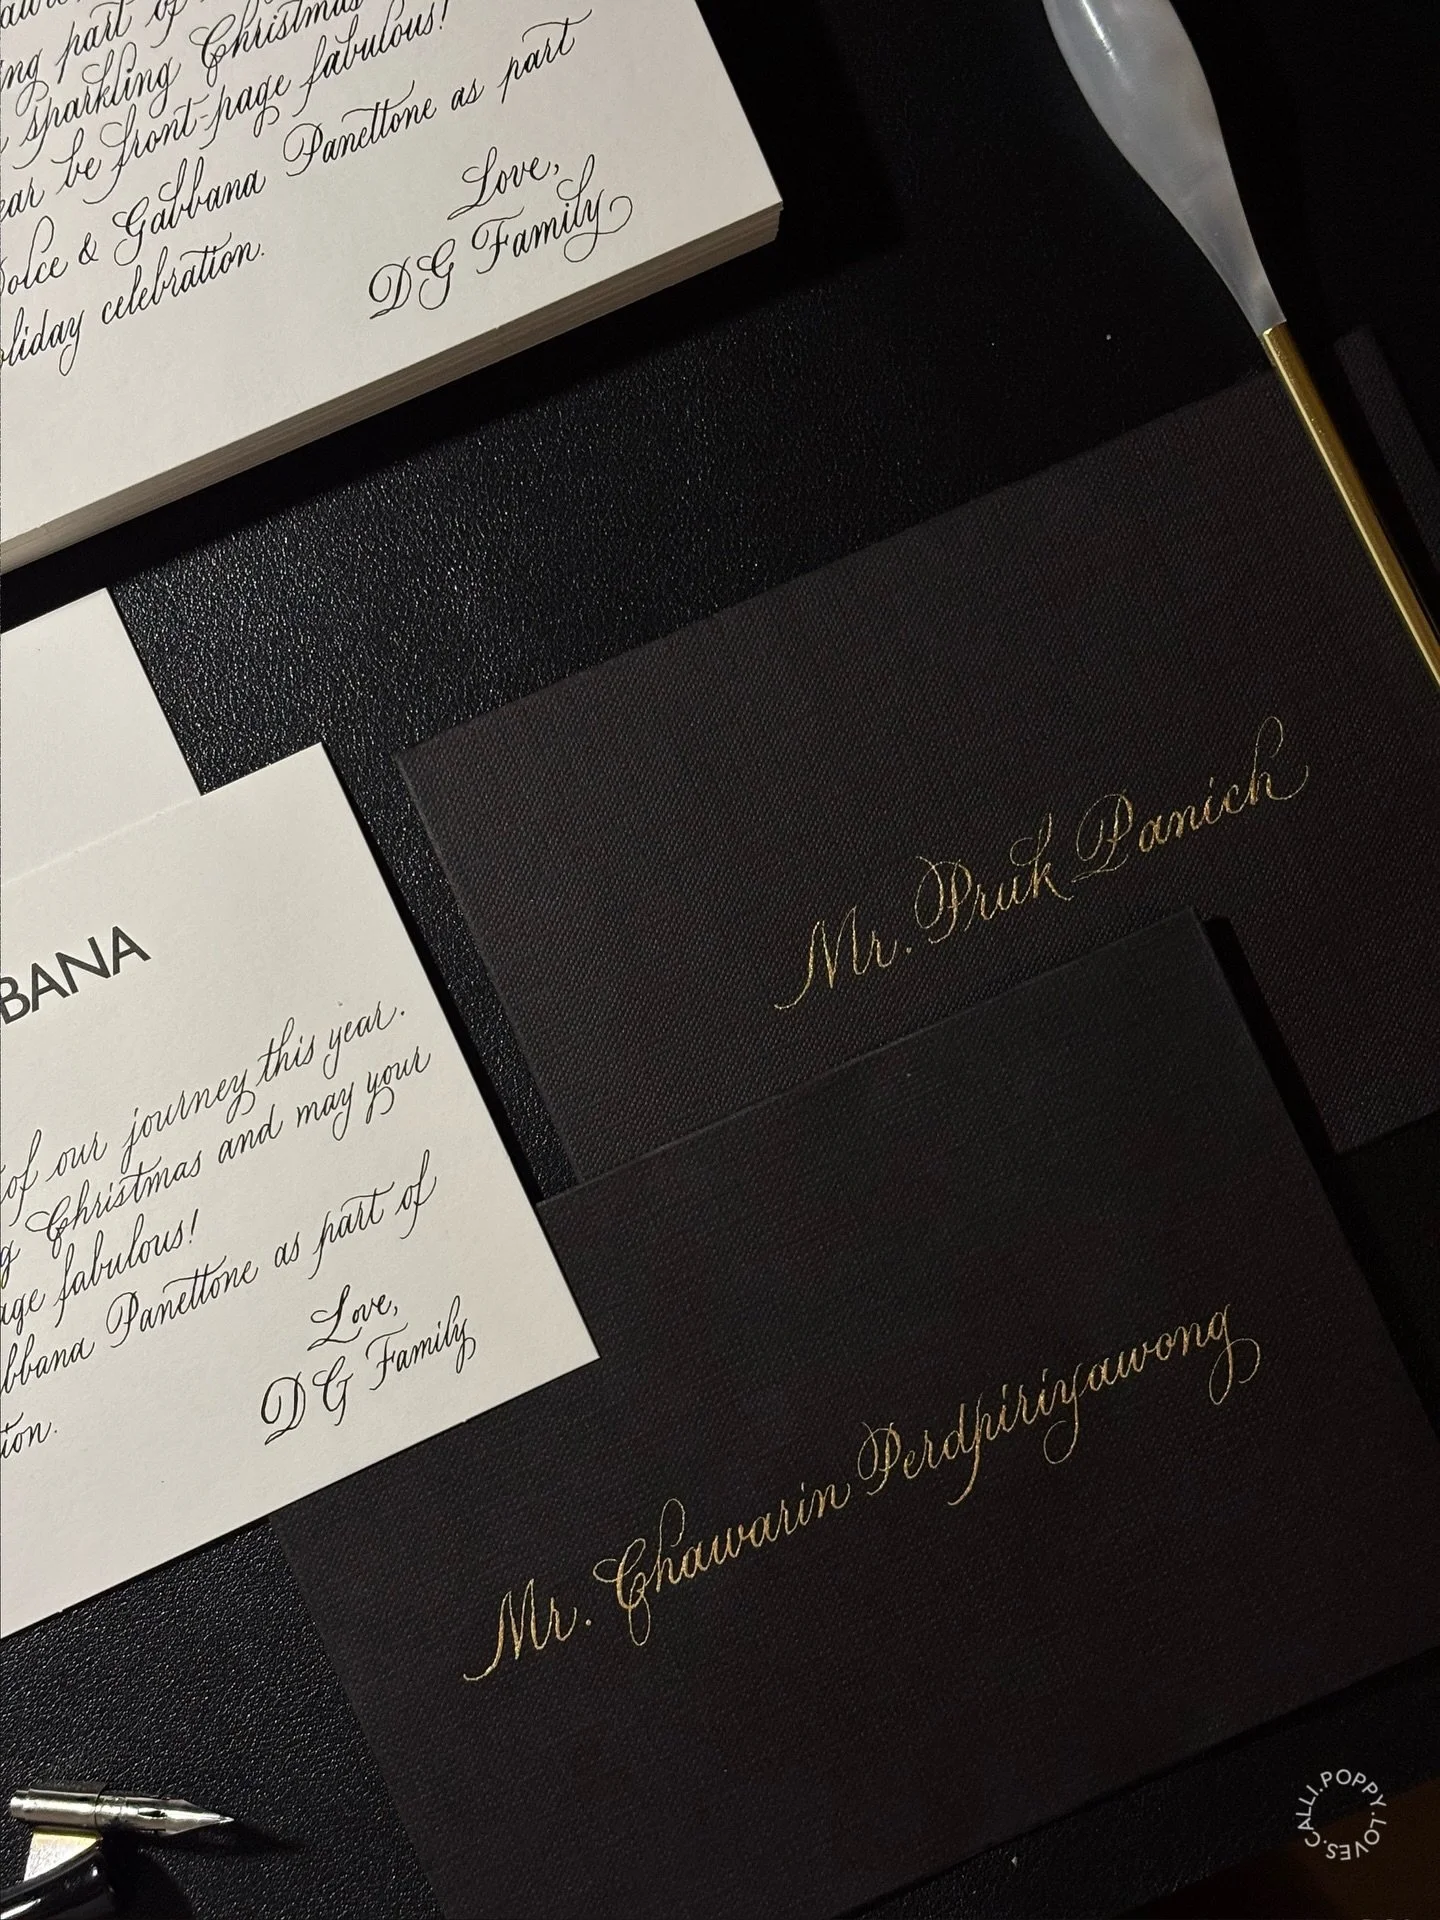 ing part of
sparkling Christmas
ear be front-page fabulous!
Dolce & Gabbana Panettone as part
oliday celebration.
Love,
DG Family
BANA
of our journey this year.
g Christmas and may your
age fabulous!
bbana Panettone as part of
ion.
Love,
DG Family
Mr. Pruk Panich
Mr. Chawarin Perdpiriyawong
CALLI.POPPY.LOVES.